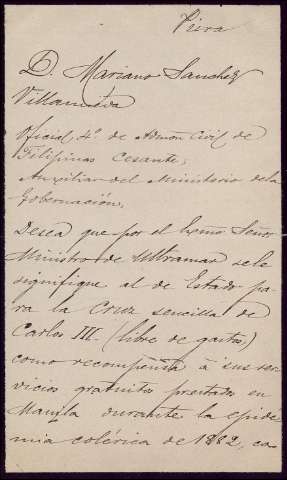 Piera
D. Mariano Sanchez
Villanueva
Oficial 4º de Admon Civil de
Filipinas Cesante,
Auxiliar del Ministerio de la
Gobernación,
Desea que por el Exmo Señor
Ministro de Ultramar se le
signifique al de Estado pa
ra la Cruz sencilla de
Carlos III. (libre de gastos)
como recompensa á sus ser
vicios gratuitos prestados en
Manila durante la epidé
mia colérica de 1882, ca